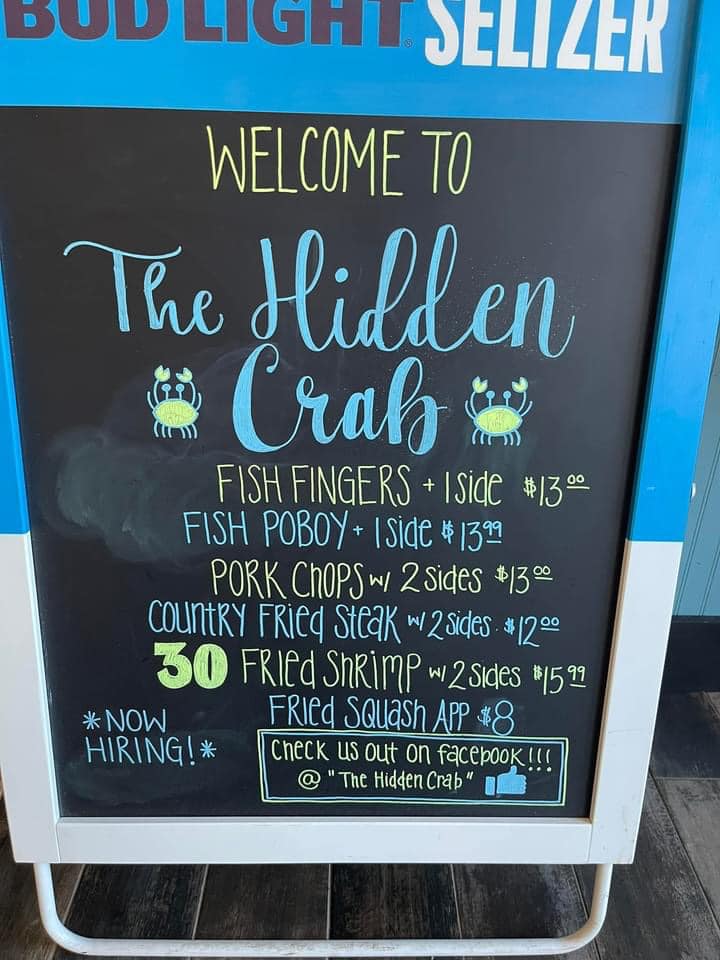 BUD LIGHT® SELTZER
WELCOME TO
The Hidden
Crab
FISH FINGERS + 1 side $13.00
FISH POBOY + 1 side $13.99
PORK CHOPS w/ 2 sides $13.00
COUNTRY FRIED STEAK w/ 2 sides. $12.00
30 FRIED SHRIMP w/ 2 sides $15.99
FRIED SQUASH APP $8
*NOW
HIRING!*
CHECK US OUT ON FACEBOOK!!!
@ "The Hidden Crab"